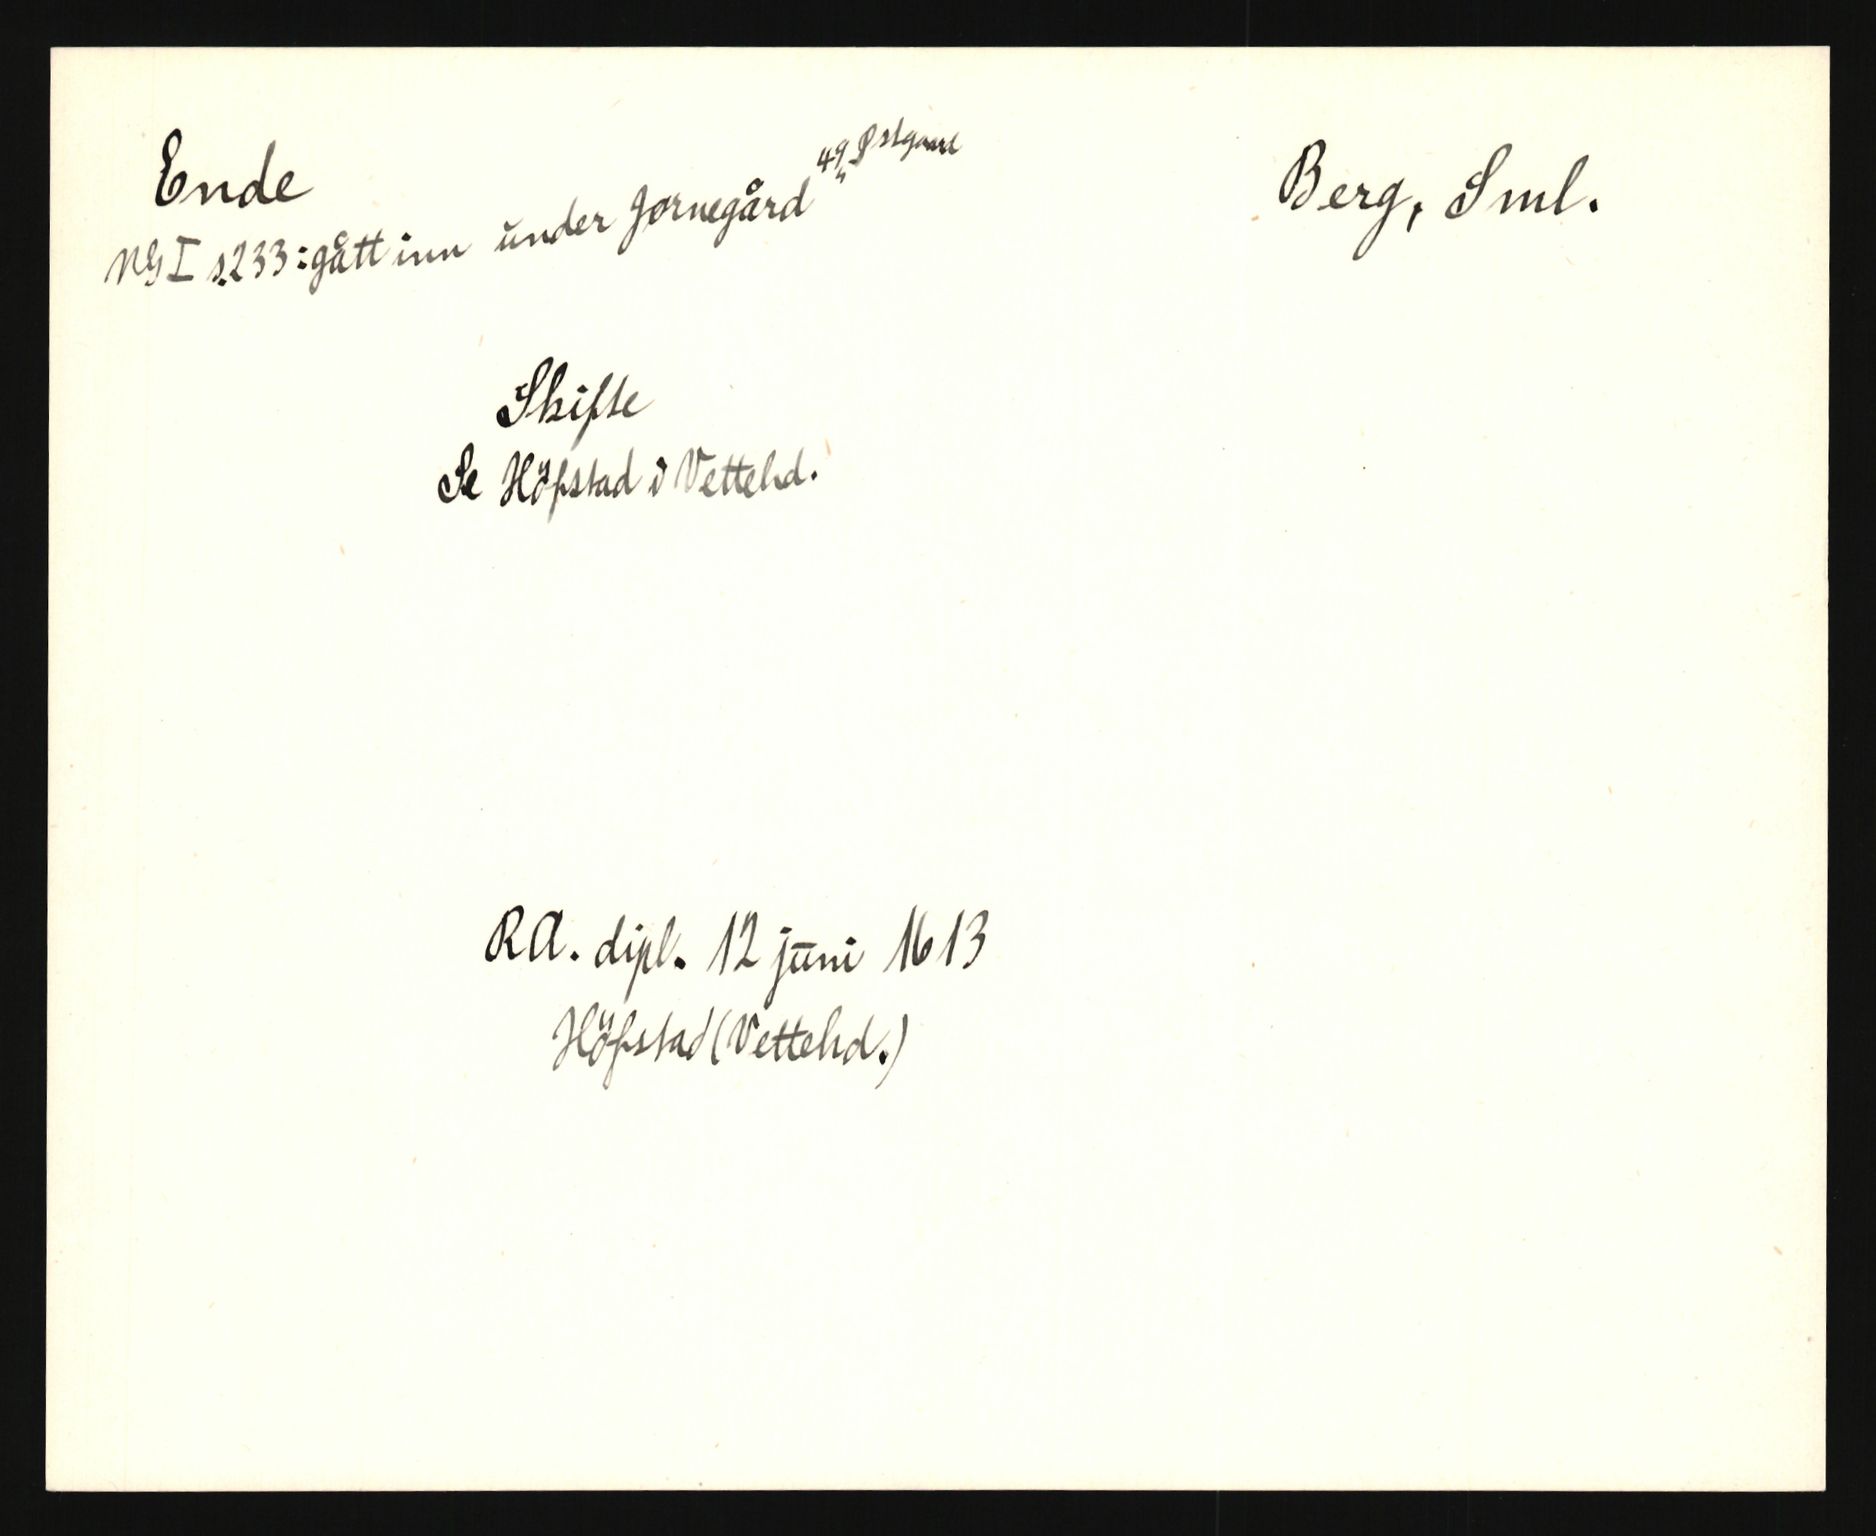 Ende
Berg, Sml.
NG I s. 233: gått inn under Jornegård 49, Østgaard
Skifte
Se Höfstad i Vettehd.
RA. dipl. 12 juni 1613
Höfstad (Vettehd.)